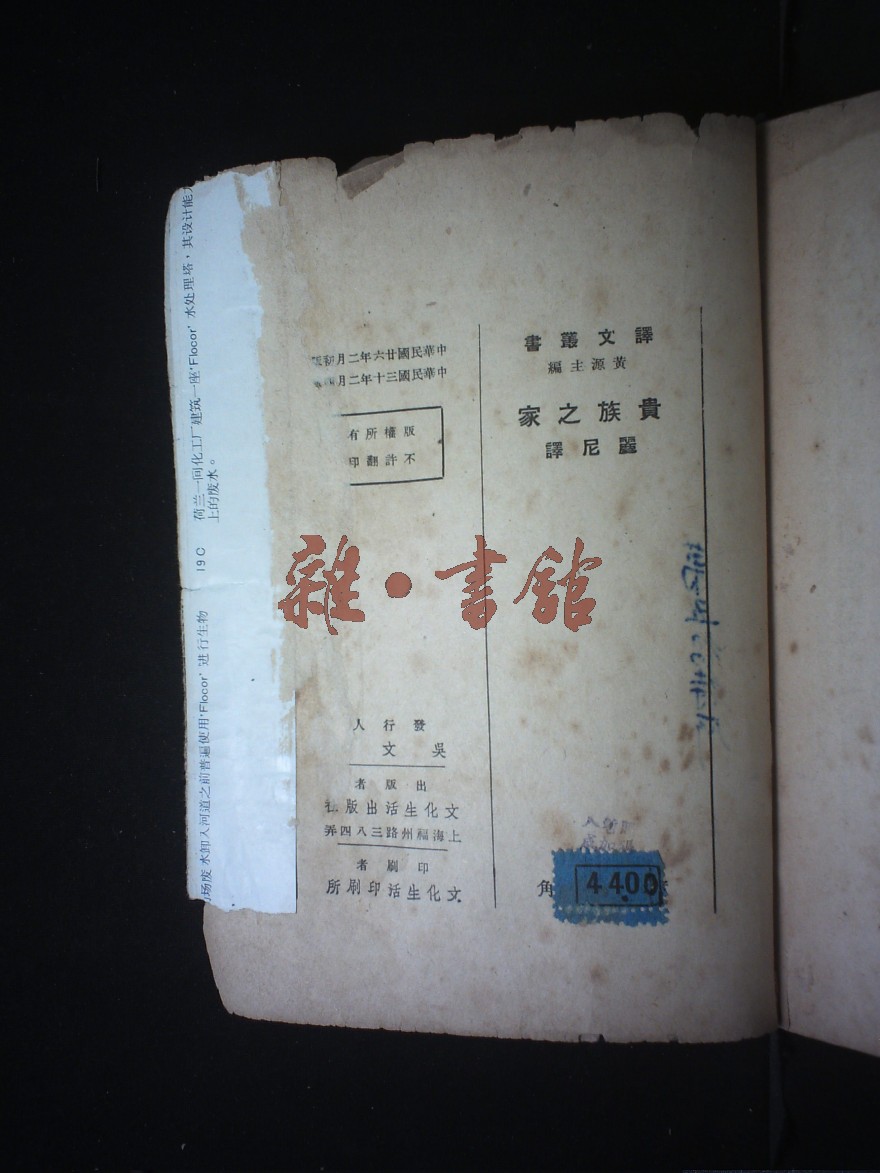 譯文叢書
黃源主編
貴族之家
麗尼譯
中華民國廿六年二月初版
中華民國三十年二月
版權所有
不許翻印
發行人
吳文
出版者
文化生活出版社
上海福州路三八四弄
印刷者
文化生活印刷所
角
4.400
雜·書館
荷兰一间化工厂建筑一座‘Flocor’水处理塔，其设计能
上的废水。
19C
场废水卸入河道之前普遍使用‘Flocor’进行生物